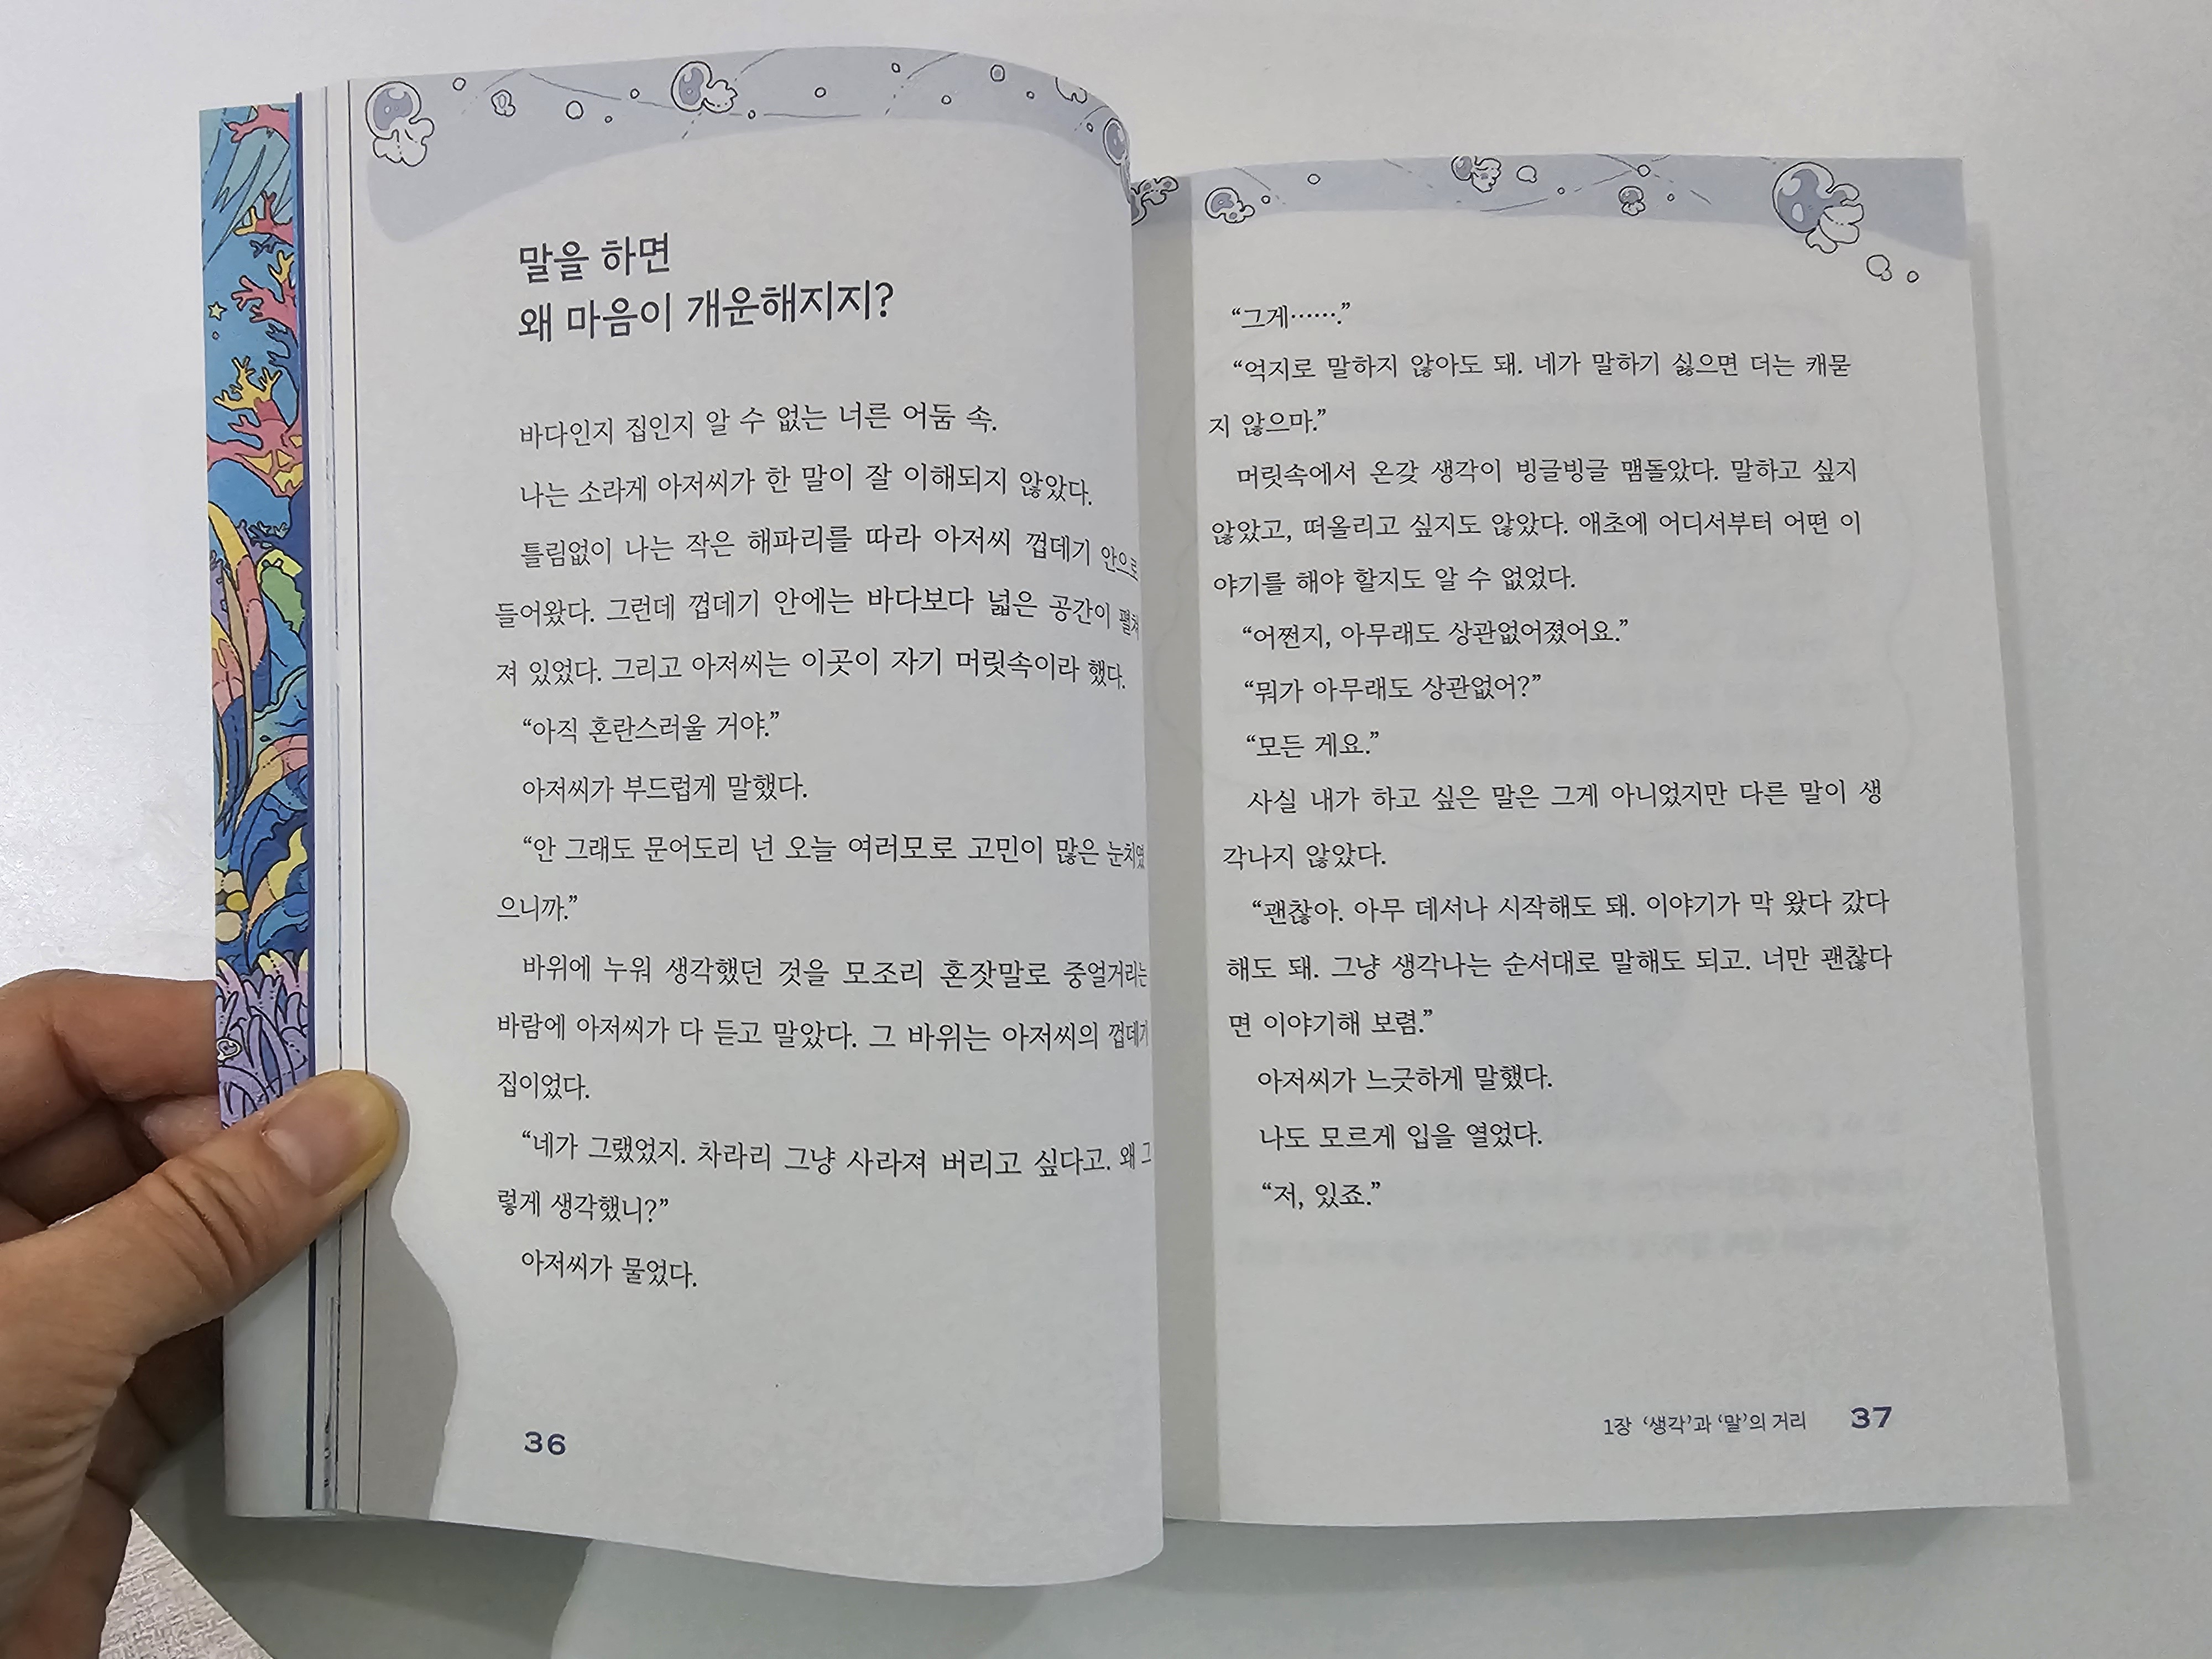 말을 하면
왜 마음이 개운해지지?
바다인지 집인지 알 수 없는 너른 어둠 속.
나는 소라게 아저씨가 한 말이 잘 이해되지 않았다.
틀림없이 나는 작은 해파리를 따라 아저씨 껍데기 안으로
들어왔다. 그런데 껍데기 안에는 바다보다 넓은 공간이 펼쳐
져 있었다. 그리고 아저씨는 이곳이 자기 머릿속이라 했다.
“아직 혼란스러울 거야.”
아저씨가 부드럽게 말했다.
“안 그래도 문어도리 넌 오늘 여러모로 고민이 많은 눈치였
으니까.”
바위에 누워 생각했던 것을 모조리 혼잣말로 중얼거리는
바람에 아저씨가 다 듣고 말았다. 그 바위는 아저씨의 껍데기
집이었다.
“네가 그랬었지. 차라리 그냥 사라져 버리고 싶다고. 왜 그
렇게 생각했니?”
아저씨가 물었다.
36
“그게…….”
“억지로 말하지 않아도 돼. 네가 말하기 싫으면 더는 캐묻
지 않으마.”
머릿속에서 온갖 생각이 빙글빙글 맴돌았다. 말하고 싶지
않았고, 떠올리고 싶지도 않았다. 애초에 어디서부터 어떤 이
야기를 해야 할지도 알 수 없었다.
“어쩐지, 아무래도 상관없어졌어요.”
“뭐가 아무래도 상관없어?”
“모든 게요.”
사실 내가 하고 싶은 말은 그게 아니었지만 다른 말이 생
각나지 않았다.
“괜찮아. 아무 데서나 시작해도 돼. 이야기가 막 왔다 갔다
해도 돼. 그냥 생각나는 순서대로 말해도 되고. 너만 괜찮다
면 이야기해 보렴.”
아저씨가 느긋하게 말했다.
나도 모르게 입을 열었다.
“저, 있죠.”
1장 ‘생각’과 ‘말’의 거리 37